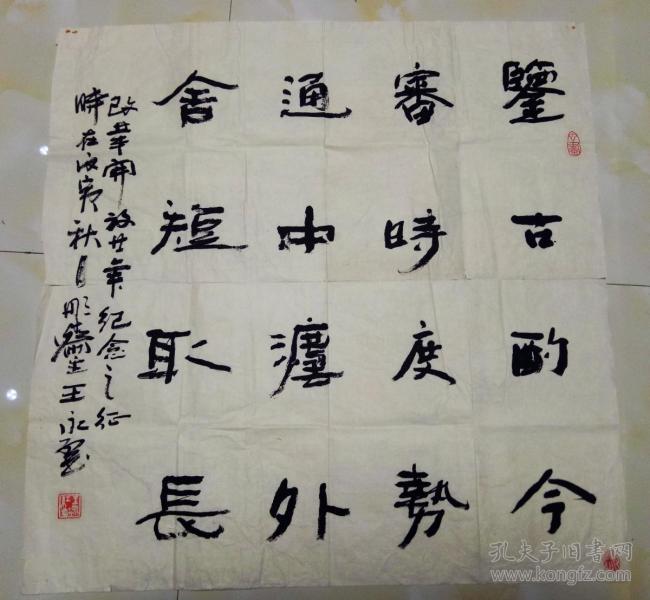 鑒古酌今
審時度勢
通中瀍外
舍短取長
改革開放廿年紀念之征
時在戊寅秋月彤  王永
孔夫子旧书网
www.kongfz.com